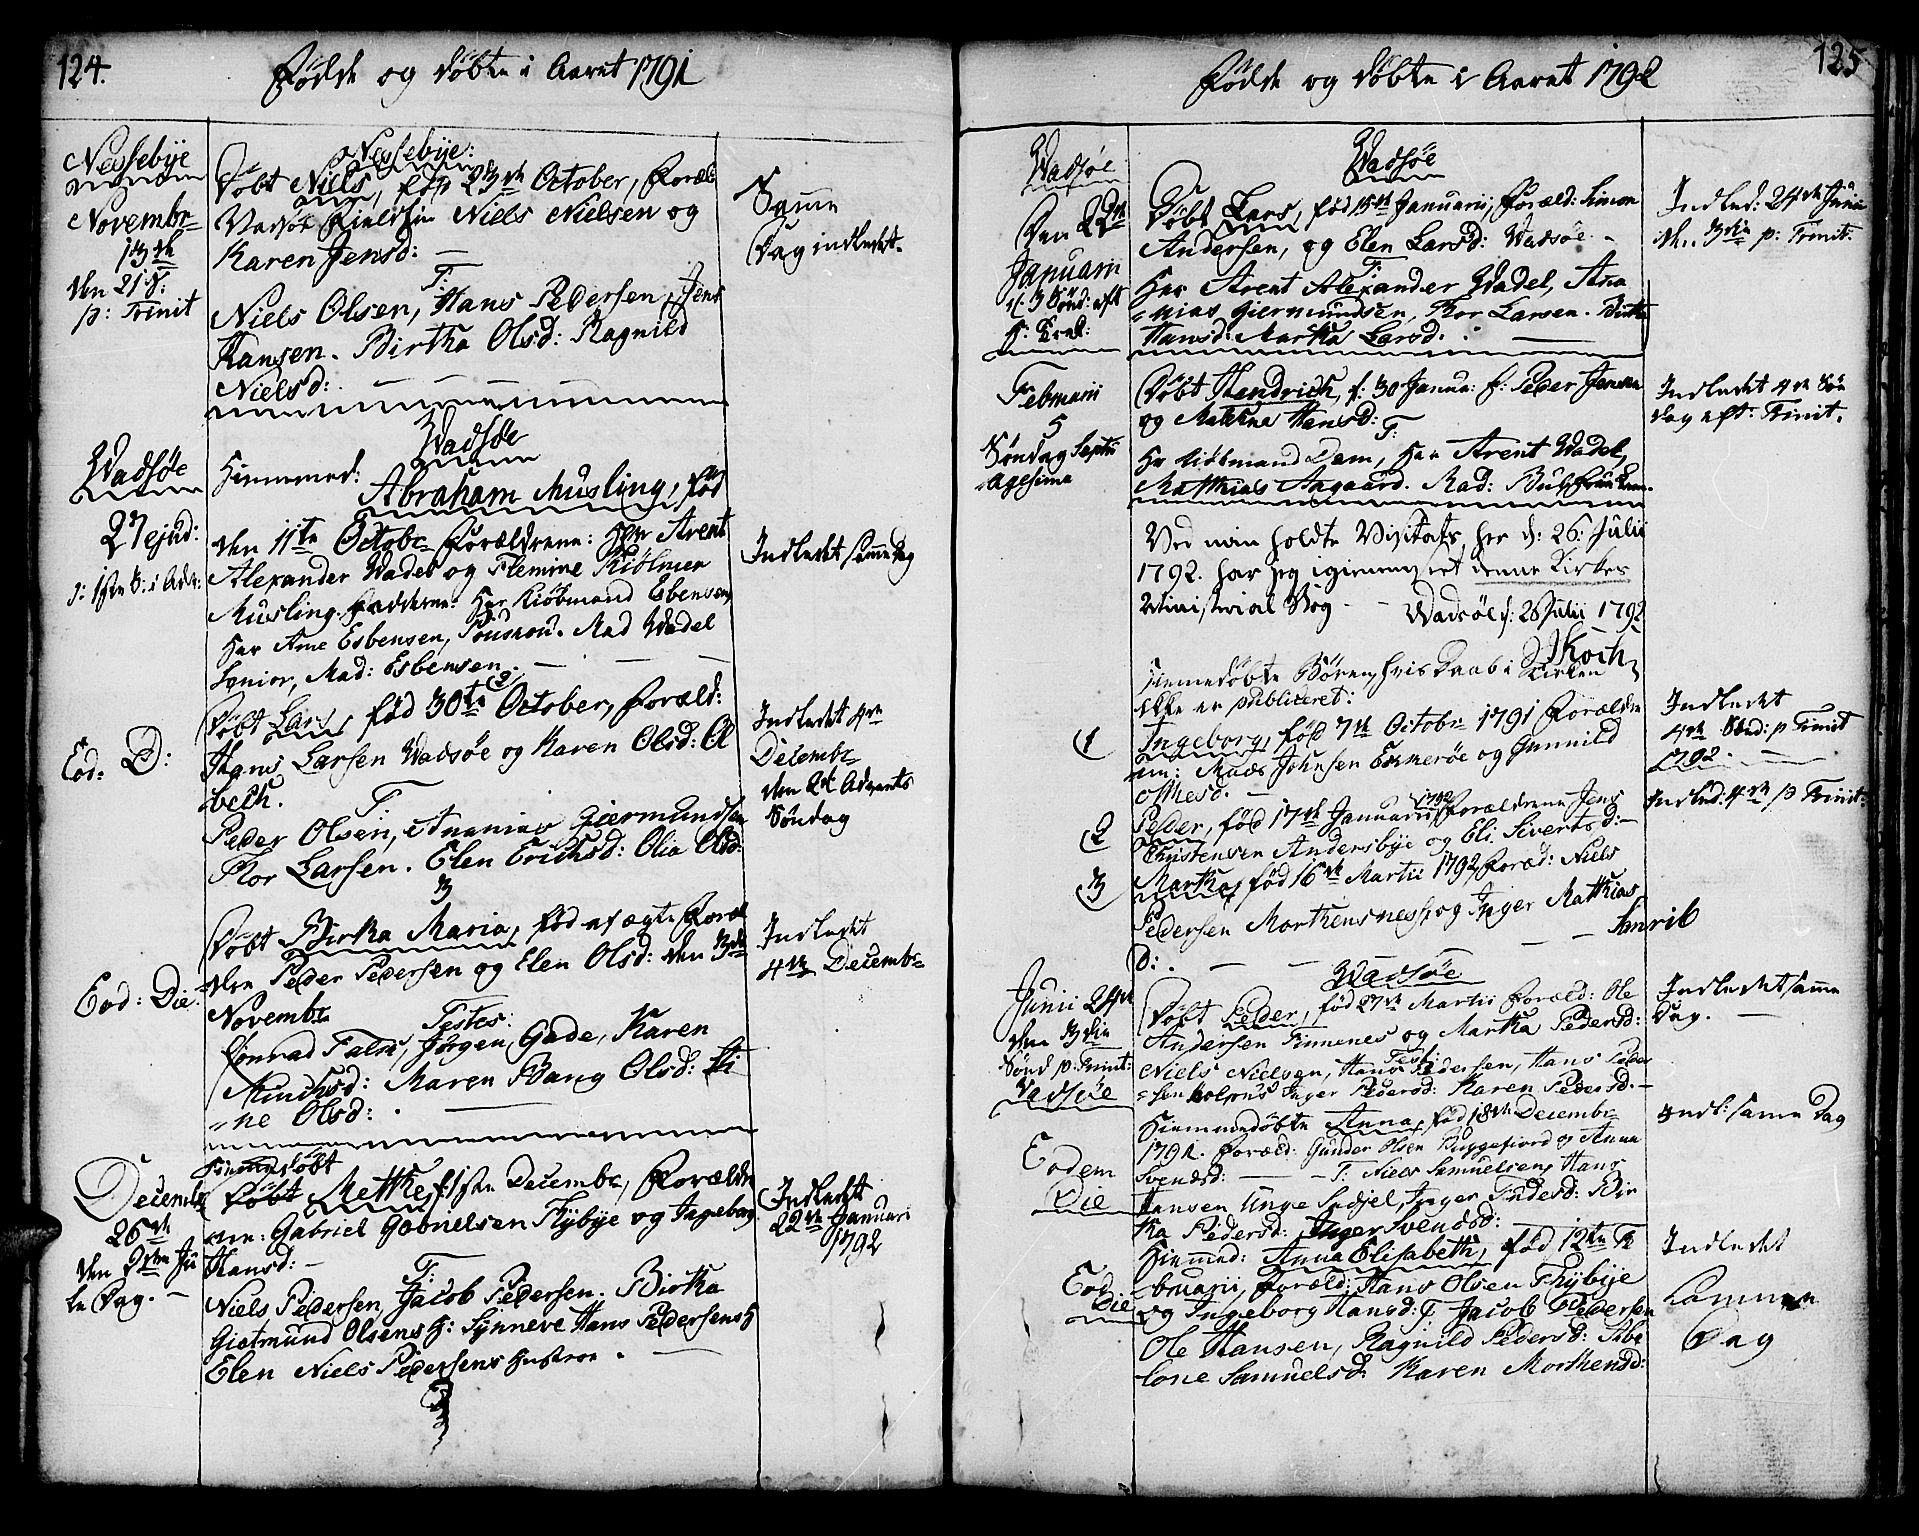 124.
Fødde og døbte i Aaret 1791
Nessebÿe
Novembr
13de
den 21 S:
p: Trinit
Nessebÿe:
Døbt Niels, fød 23de October, Foræl:
Niels Nielsen og
Karen Jensd: —
T:
Niels Olsen, Hans Pedersen, Jens
Hansen. Birtha Olsd: Ragnild
Nielsd:
Samme
Dag indledet.
Wadsøe
Wadsøe
27 ejusd:
Hiemmed:
Abraham Müsling, fød
den 11te Octobr Forældrene: Herr Arent
Alexander Wadel og Flemine Kiølmer
Müsling. Fadderne: Herr Kiøbmand Esbensen,
Herr Ame Esbensen, Mad Wadel
Senior, Mad: Esbensen. —
Indledet samme Dag
2
Eod: D:
Døbt Lars, fød 30te October, Foræld:
Hans Larsen Wadsøe og Karen Olsd: A
beth.
T:
Peder Olsen, Ananias Giermundsen
Thor Larsen. Elen Erichsd: Olia Olsd:
Indledet 4de
Decembr
den 2de Advents
Søndag
3
Eod: Die:
Døbt Birtha Maria, fød af ægte Foræl
dre Peder Pedersen og Elen Olsd: den 3de
Novembr Testes:
Conrad Falch, Jørgen Gade, Karen
Munchsd: Maren Bang Olsd: Ti
ne Olsd: . —
Indledet
4de Decembr
Decembr
26de
den 2den Ju
le Dag. —
Hiemmedøbt
Døbt Methe, f: 1ste Decembr, Forældre
ne: Gabriel Gabrielsen Thÿbÿe og Ingeborg
Hansd: —
T:
Niels Pedersen, Jacob Pedersen. Birtha
Gietmund Olsens H: Sÿnneve Hans Pedersens H
Elen Niels Pedersens Hustroe.
Indledet
22de Januari
1792
125
Fødde og døbte i Aaret 1792
Wadsøe
Den 22de
Januarii
3 Sønd: eft
H: Trek:
Wadsøe
Døbt Lars, fød 15de Januarii, Foræld: Simon
Andersen, og Elen Larsd: Wadsøe –
T:
Herr Arent Alexander Wadel, Ana
nias Giermundsen, Thor Larsen. Birtha
Hansd: Martha Larsd. . —
Indled: 24de Junii
den 3die p: Trinit:
Februarii
5
Søndag Septu
agesima
Døbt Hendrich, f: 30 Janua: f: Peder Jensen
og Mathæa Hansd:
T:
Hr Kiøbmand Dam, Herr Arent Wadel,
Matthias Aagaard. Mad:
Indledet 4de Søn
dag eft: Trinit.
Ved min holdte Visitats her d: 26: Julii
1792. har jeg igiennemseet denne Kirkes
Ministerial Bog – – Wadsøe d: 26 Julii 1792
Koch
Hiemmedøbte Børen, hvis Daab i Kirken
ikke er publiceret:
1
Ingeborg, fød 7de Octobr 1791 Forældre
ne: Mads Johnsen Ekkerøe og Gunnild
Indledet
4de Sønd: p Trinit
1792.
2
Peder, fød 17de Januarii 1792 Forældrene Jens
Christensen Andersbÿe og Eli Sivertsd: –
Indled: 4de p Trinit:
3
Martha, fød 16de Martii 1792, Foræld: Niels
Pedersen Morthensness, og Inger Mathias
D: . — — — —
Junii 24de
den 3die
Sønd p: Trinit:
Vadsøe
Wadsøe
Døbt Peder, fød 27de Martii Foræld: Ole
Andersen Finnenes og Martha Pedersd:
Test:
Niels Nielsen, Hans Pedersen, Hans Peder
sen Inger Pedersd: Karen Pedersd. –
Indledet samme
Dag. —
Eodem
Die
Hiemmedøbte Anna, fød 18de Decembr
1791. Foræld: Gunder Olsen Buggefiord og Anna
Svendsd: — T. Niels Samuelsen, Hans
Hansen, Unge Inger Findesd: Bir
tha Pedersd: Inger Svendsd:
Indl: same Dag
Eod
Die
Hiemmed: Anna Elisabeth, fød 12te Fe
bruarii, Foræld: Hans Olsen Thÿbÿe
og Ingeborg Hansd: T. Jacob Pedersen
Ole Hansen, Ragnild Pedersd: Sibe
lone Samuelsd. Karen Morthensd:
Indledet
samme
Dag